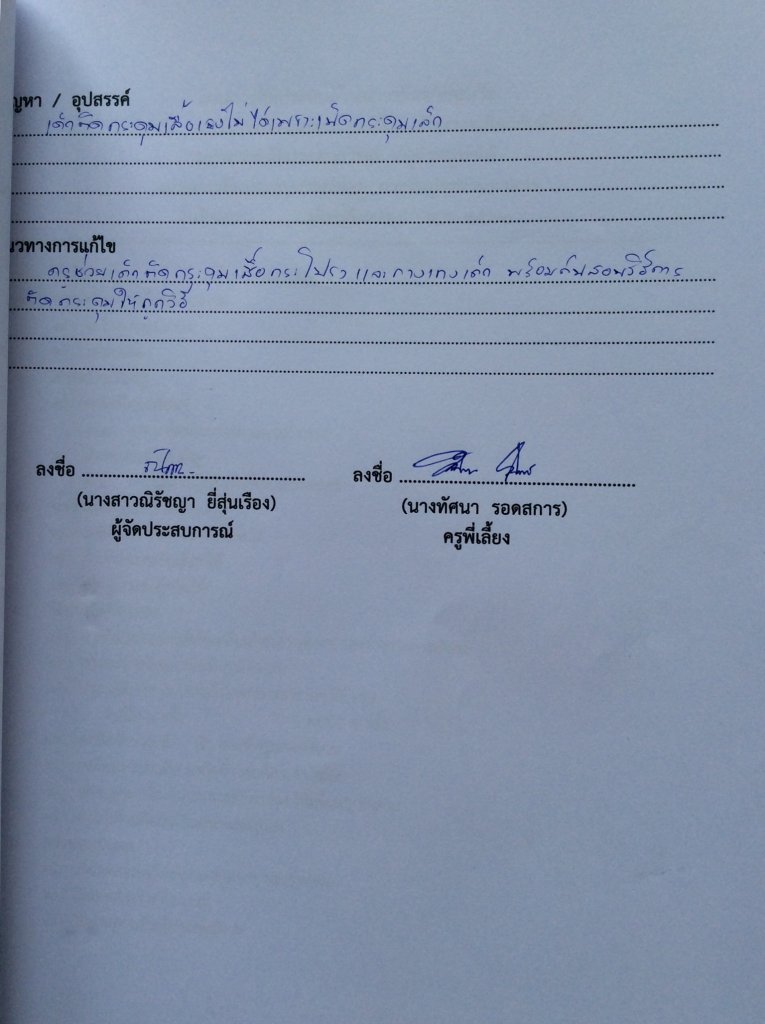 ญหา / อุปสรรค์
เด็กติดกระดุมเสื้อเองไม่ได้เพราะเม็ดกระดุมเล็ก
นวทางการแก้ไข
ครูช่วยเด็กติดกระดุมเสื้อ กระโปรง และกางเกงเด็ก พร้อมกับสอนวิธีการ
ติดกระดุมให้ถูกวิธี
ลงชื่อ ลงชื่อ
(นางสาวณิรัชญา ยี่สุ่นเรือง) (นางทัศนา รอดสการ)
ผู้จัดประสบการณ์ ครูพี่เลี้ยง